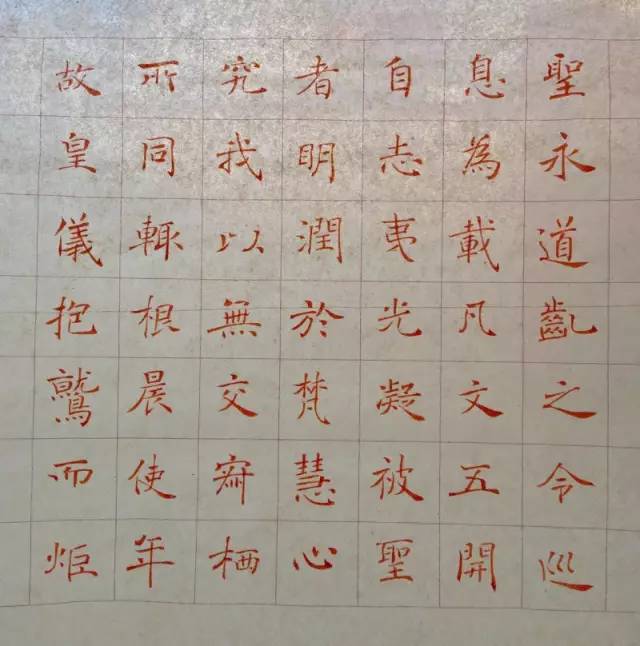 聖永道齓之令巡
息為載凡文五開
自志夷光凝被聖
者明潤於梵慧心
究我以無交栖
所同輙根晨使年
故皇儀抱鷲而炬